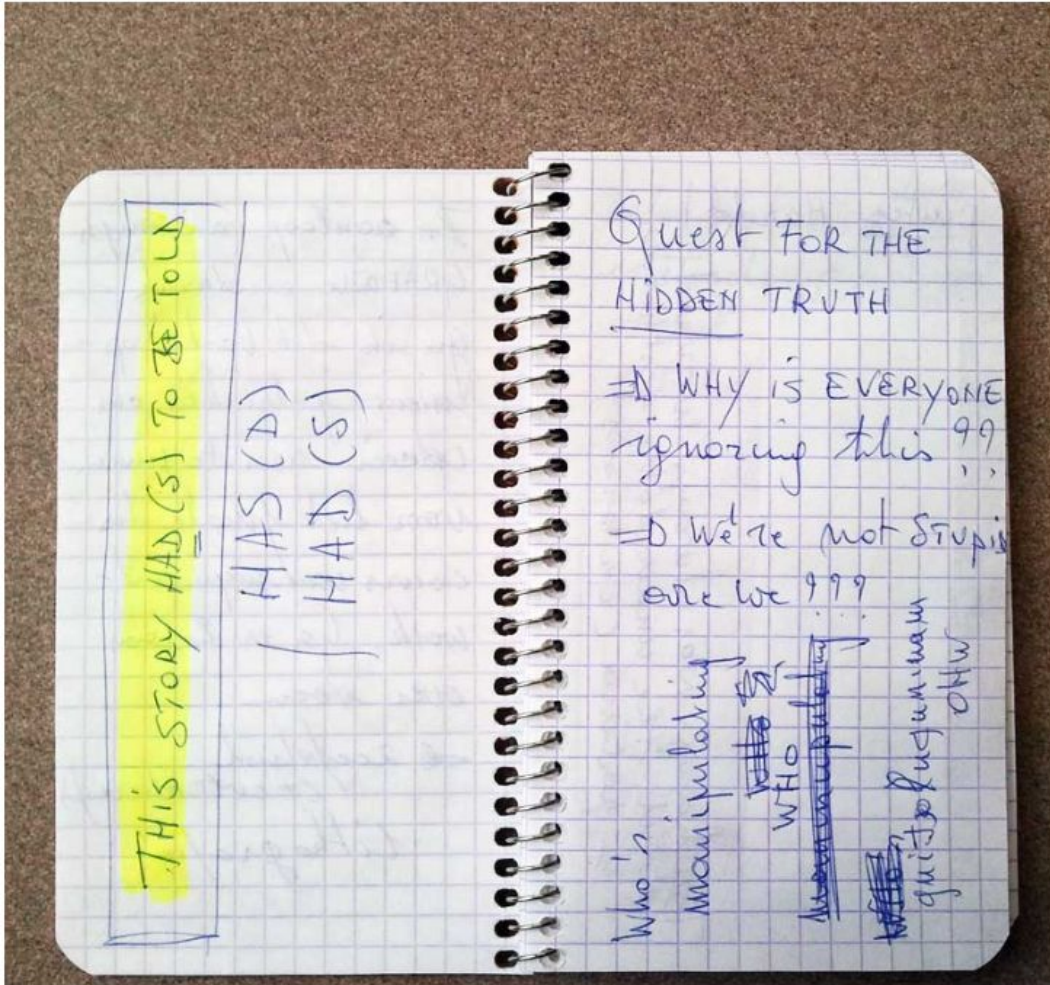 THiS STORY HAD(S) TO BE TOLD
HAS (D)
HAD (S)
Quest FOR THE
HiDDEN TRUTH
=D WHY iS EVERYONE
ignoring this ??
=D We're not Stupid
are we ???
Who's
manipulating
WHO
OHW